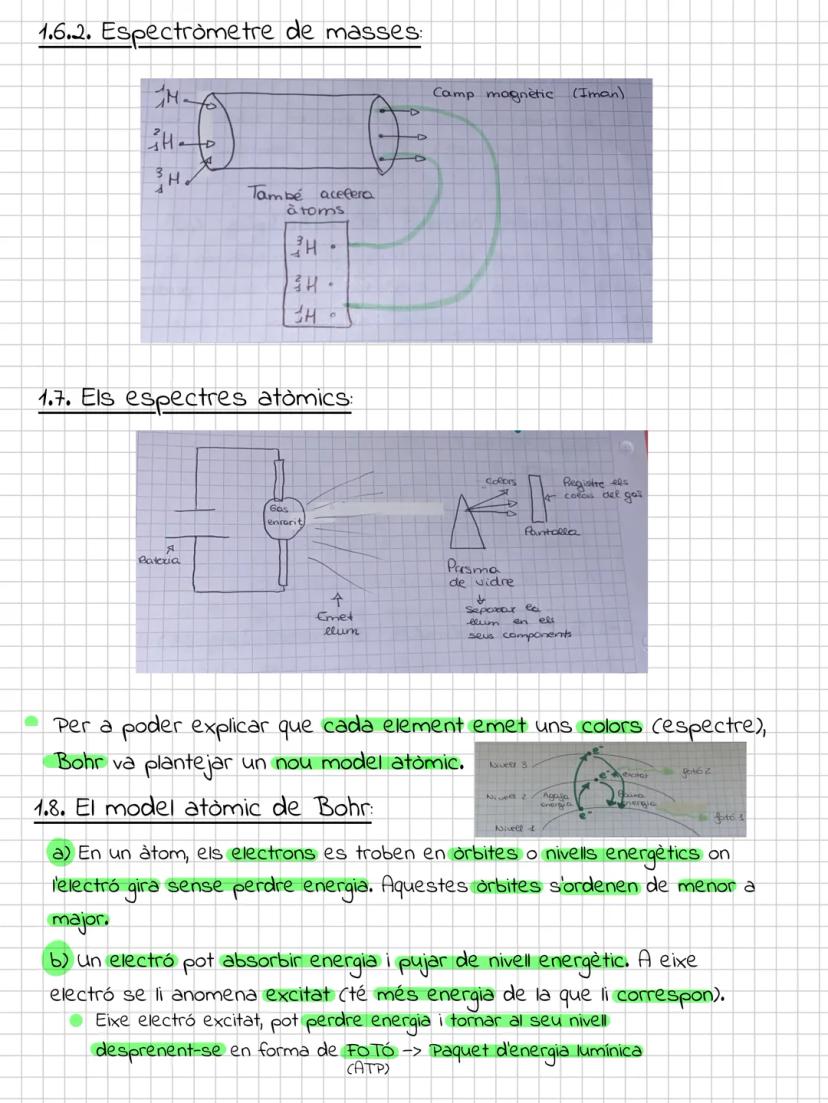 1.6.2. Espectròmetre de masses:
¹₁H
²₁H
³₁H
Camp magnètic (Iman)
També accelera
àtoms
³₁H
²₁H
¹₁H
1.7. Els espectres atòmics:
Bateria
Gas
enrarit
Emet
llum
Colors
Prisma
de vidre
Separar la
llum en els
seus components
Pantalla
Registre els
colors del gas
Per a poder explicar que cada element emet uns colors (espectre),
Bohr va plantejar un nou model atòmic.
Nivell 3
Nivell 2
Nivell 1
Agafa
energia
e⁻
e⁻ excitat
Baixa
energia
e⁻
fotó 2
fotó 1
1.8. El model atòmic de Bohr:
a) En un àtom, els electrons es troben en òrbites o nivells energètics on
l'electró gira sense perdre energia. Aquestes òrbites s'ordenen de menor a
major.
b) Un electró pot absorbir energia i pujar de nivell energètic. A eixe
electró se li anomena excitat (té més energia de la que li correspon).
Eixe electró excitat, pot perdre energia i tornar al seu nivell
desprenent-se en forma de FOTÓ -> Paquet d'energia lumínica
(ATP)